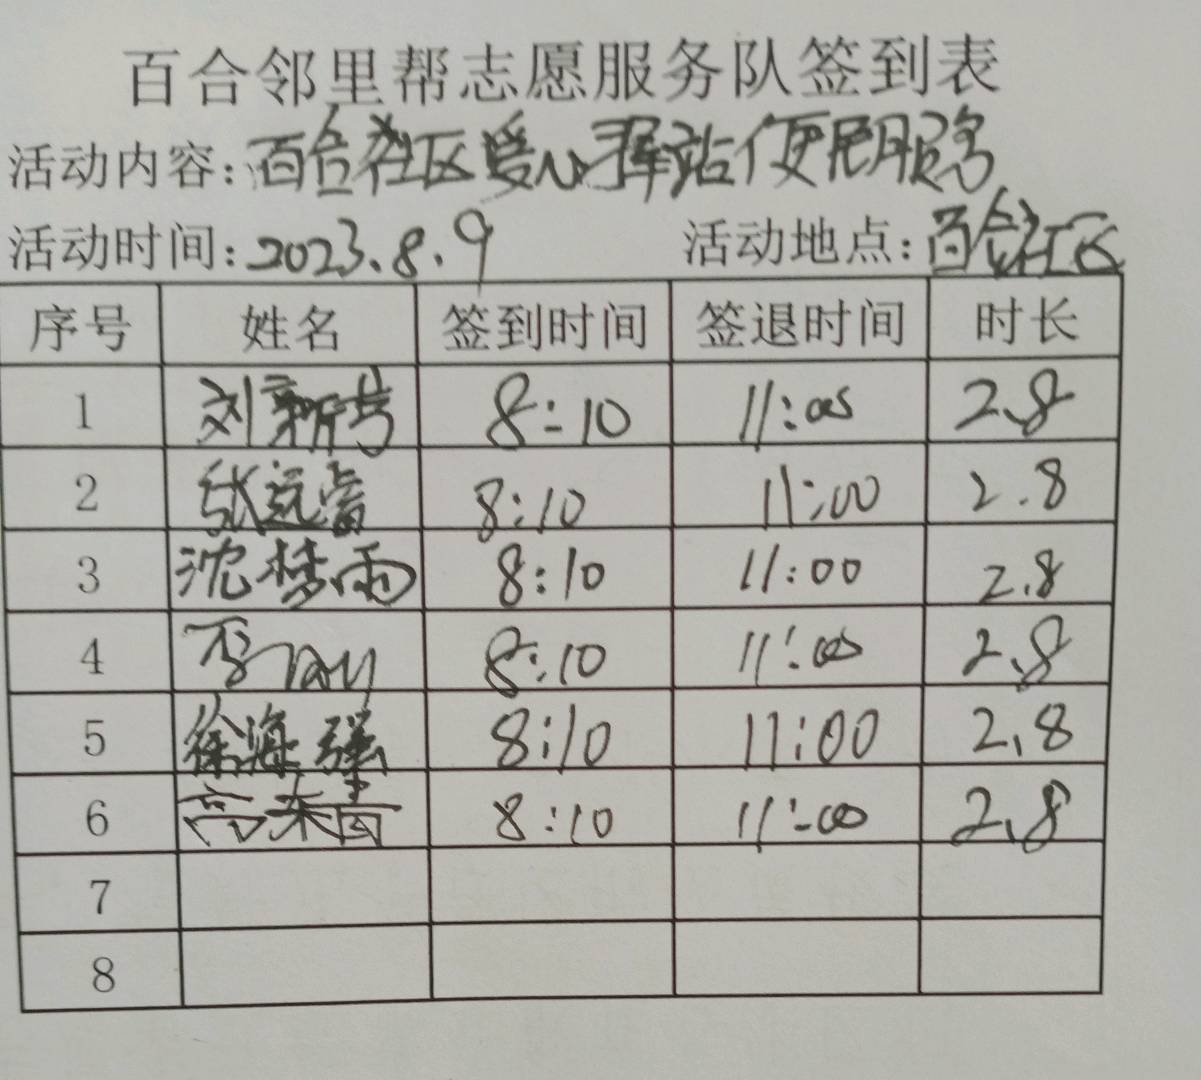 百合邻里帮志愿服务队签到表
活动内容:百合社区爱心驿站便民服务
活动时间:2023.8.9 活动地点:百合社区
序号 姓名 签到时间 签退时间 时长
1 刘新 8:10 11:00 2.8
2 张 8:10 11:00 2.8
3 沈梦雨 8:10 11:00 2.8
4 8:10 11:00 2.8
5 徐海强 8:10 11:00 2.8
6 高来香 8:10 11:00 2.8
7
8